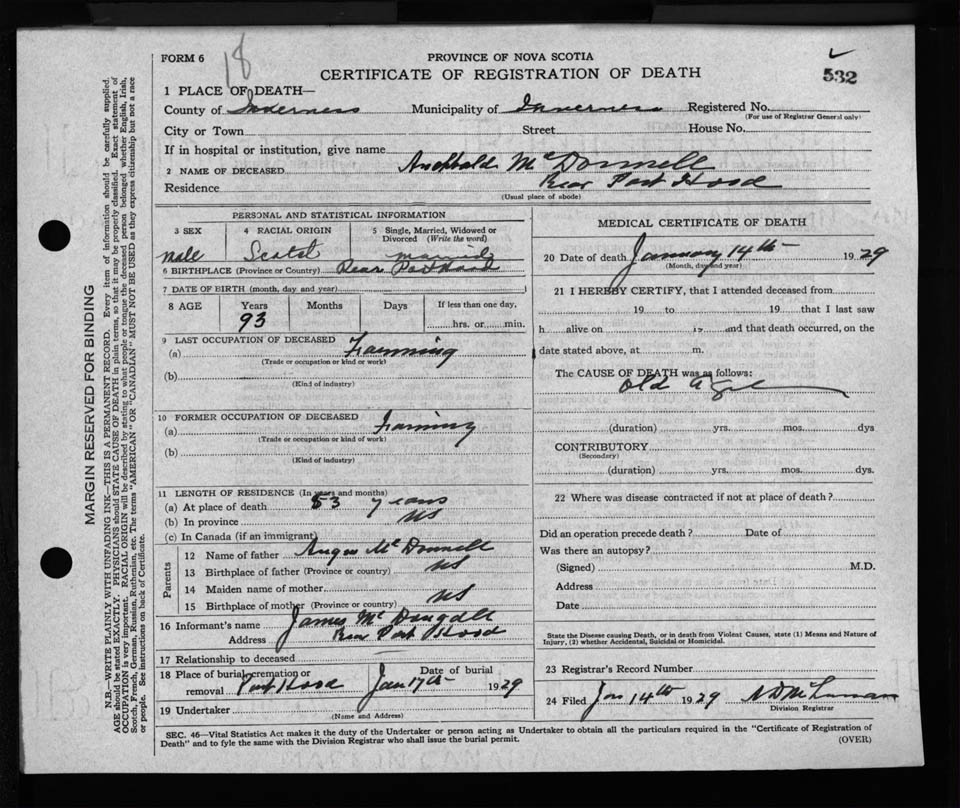 18
FORM 6
PROVINCE OF NOVA SCOTIA
532
CERTIFICATE OF REGISTRATION OF DEATH
1 PLACE OF DEATH—
County of Inverness Municipality of Inverness Registered No.
(For use of Registrar General only)
City or Town Street House No.
If in hospital or institution, give name
2 NAME OF DECEASED Archbald McDonnell
Residence Rear Port Hood
(Usual place of abode)
PERSONAL AND STATISTICAL INFORMATION
3 SEX 4 RACIAL ORIGIN 5 Single, Married, Widowed or Divorced (Write the word)
male Scotch married
6 BIRTHPLACE (Province or Country) Rear Port Hood
7 DATE OF BIRTH (month, day and year)
8 AGE Years Months Days If less than one day,
93 hrs. or min.
9 LAST OCCUPATION OF DECEASED
(a) Farming
(Trade or occupation or kind of work)
(b)
(Kind of industry)
10 FORMER OCCUPATION OF DECEASED
(a) Farming
(Trade or occupation or kind of work)
(b)
(Kind of industry)
11 LENGTH OF RESIDENCE (In years and months)
(a) At place of death 53 years
(b) In province NS
(c) In Canada (if an immigrant)
Parents
12 Name of father Angus McDonnell
13 Birthplace of father (Province or country) NS
14 Maiden name of mother
15 Birthplace of mother (Province or country) NS
16 Informant's name James McDougall
Address Rear Port Hood
17 Relationship to deceased
18 Place of burial, cremation or removal Port Hood Date of burial Jan 17th 1929
19 Undertaker
(Name and Address)
MEDICAL CERTIFICATE OF DEATH
20 Date of death January 14th 1929
(Month, day and year)
21 I HEREBY CERTIFY, that I attended deceased from
19 to 19 that I last saw
h alive on 19 and that death occurred, on the
date stated above, at m.
The CAUSE OF DEATH was as follows:
Old age
(duration) yrs. mos. dys
CONTRIBUTORY
(Secondary)
(duration) yrs. mos. dys.
22 Where was disease contracted if not at place of death?
Did an operation precede death? Date of
Was there an autopsy?
(Signed) M.D.
Address
Date
State the Disease causing Death, or in death from Violent Causes, state (1) Means and Nature of
Injury, (2) whether Accidental, Suicidal or Homicidal.
23 Registrar's Record Number
24 Filed Jan 14th 1929
Division Registrar
SEC. 46—Vital Statistics Act makes it the duty of the Undertaker or person acting as Undertaker to obtain all the particulars required in the "Certificate of Registration of
Death" and to fyle the same with the Division Registrar who shall issue the burial permit.
(OVER)
MARGIN RESERVED FOR BINDING
N.B.—WRITE PLAINLY WITH UNFADING INK—THIS IS A PERMANENT RECORD. Every item of information should be carefully supplied.
AGE should be stated EXACTLY. PHYSICIANS should STATE CAUSE OF DEATH in plain terms, so that it may be properly classified. Exact statement of
OCCUPATION is very important. RACIAL ORIGIN will be described by stating to what people or tongue the deceased person belonged whether English, Irish,
Scotch, French, German, Russian, Ruthenian, etc. The terms "AMERICAN" OR "CANADIAN" MUST NOT BE USED as they express citizenship but not a race
or people. See instructions on back of Certificate.